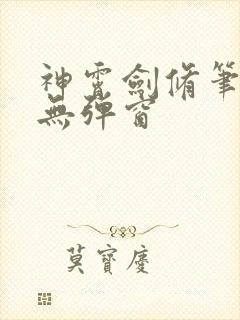 神霄劍脩筆
無彈窗
莫寶廛